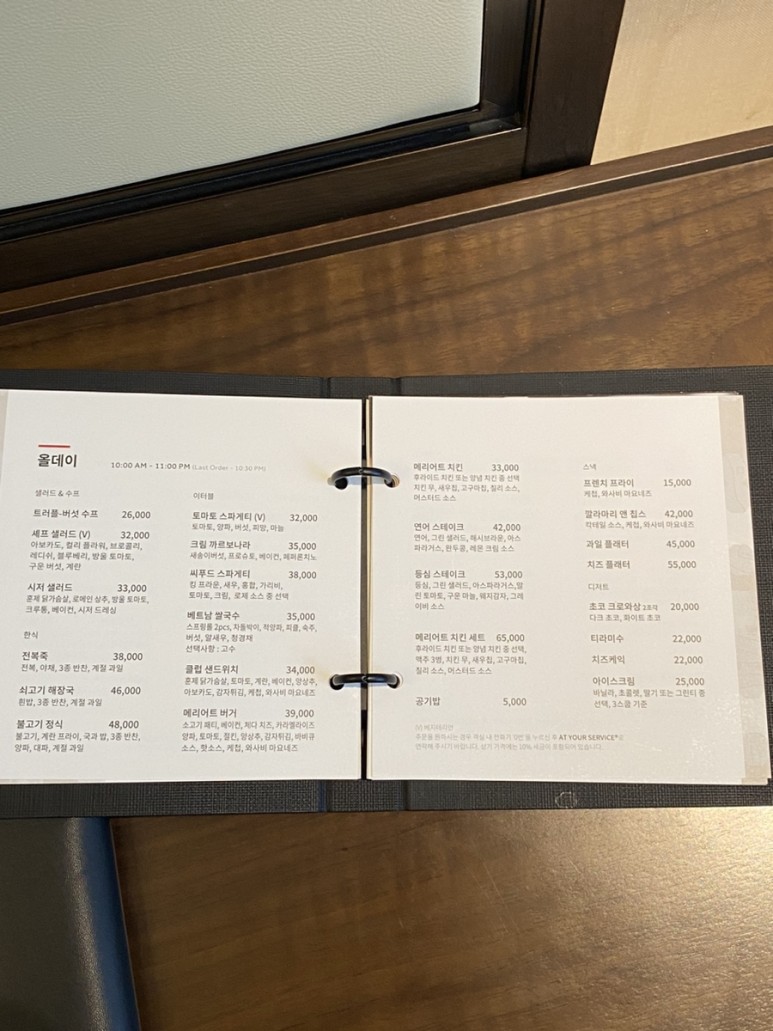 올데이
10:00 AM - 11:00 PM (Last Order - 10:30 PM)
샐러드 & 수프
트러플-버섯 수프 26,000
셰프 샐러드 (V) 32,000
아보카도, 컬리 플라워, 브로콜리,
레디쉬, 블루베리, 방울 토마토,
구운 버섯, 계란
시저 샐러드 33,000
훈제 닭가슴살, 로메인 상추, 방울 토마토,
크루통, 베이컨, 시저 드레싱
한식
전복죽 38,000
전복, 야채, 3종 반찬, 계절 과일
쇠고기 해장국 46,000
흰밥, 3종 반찬, 계절 과일
불고기 정식 48,000
불고기, 계란 프라이, 국과 밥, 3종 반찬,
양파, 대파, 계절 과일
이터블
토마토 스파게티 (V) 32,000
토마토, 양파, 버섯, 피망, 마늘
크림 까르보나라 35,000
새송이버섯, 프로슈토, 베이컨, 페퍼론치노
씨푸드 스파게티 38,000
킹 프라운, 새우, 홍합, 가리비,
토마토, 크림, 로제 소스 중 선택
베트남 쌀국수 35,000
스프링롤 2pcs, 차돌박이, 적양파, 피클, 숙주,
버섯, 알새우, 청경채
선택사항 : 고수
클럽 샌드위치 34,000
훈제 닭가슴살, 토마토, 계란, 베이컨, 양상추,
아보카도, 감자튀김, 케첩, 와사비 마요네즈
메리어트 버거 39,000
소고기 패티, 베이컨, 체다 치즈, 카라멜라이즈
양파, 토마토, 절킨, 양상추, 감자튀김, 바비큐
소스, 핫소스, 케첩, 와사비 마요네즈
메리어트 치킨 33,000
후라이드 치킨 또는 양념 치킨 중 선택
치킨 무, 새우칩, 고구마칩, 칠리 소스,
머스터드 소스
연어 스테이크 42,000
연어, 그린 샐러드, 해시브라운, 아스
파라거스, 완두콩, 레몬 크림 소스
등심 스테이크 53,000
등심, 그린 샐러드, 아스파라거스, 말
린 토마토, 구운 마늘, 웨지감자, 그레
이비 소스
메리어트 치킨 세트 65,000
후라이드 치킨 또는 양념 치킨 중 선택,
맥주 3병, 치킨 무, 새우칩, 고구마칩,
칠리 소스, 머스터드 소스
공기밥 5,000
(V) 베지테리안
주문을 원하시는 경우 객실 내 전화기 '0번'을 누르신 후 AT YOUR SERVICE®로
연락해 주시기 바랍니다. 상기 가격에는 10% 세금이 포함되어 있습니다.
스낵
프렌치 프라이 15,000
케첩, 와사비 마요네즈
깔라마리 앤 칩스 42,000
칵테일 소스, 케첩, 와사비 마요네즈
과일 플래터 45,000
치즈 플래터 55,000
디저트
초코 크로와상 2조각 20,000
다크 초코, 화이트 초코
티라미수 22,000
치즈케익 22,000
아이스크림 25,000
바닐라, 초콜렛, 딸기 또는 그린티 중
선택, 3스쿱 기준